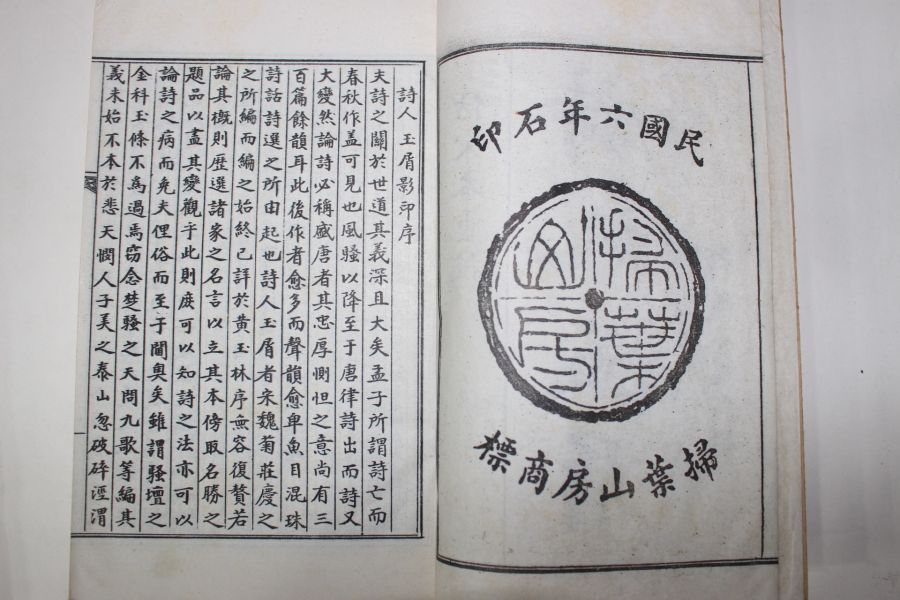 民國六年石印
掃葉山房
掃葉山房商標
詩人玉屑影印序
夫詩之關於世道其義深且大矣孟子所謂詩亡而
春秋作盖可見也風騷以降至于唐律詩出而詩又
大變然論詩必稱盛唐者其忠厚惻怛之意尚有三
百篇餘韻耳此後作者愈多而聲韻愈卑魚目混珠
詩話詩選之所由起也詩人玉屑者宋魏菊莊慶之
之所編而編之始終已詳於黄玉林序無容復贅若
論其概則歷選諸家之名言以立其本傍取名勝之
題品以盡其變觀乎此則庶可以知詩之法亦可以
論詩之病而免夫俚俗而至于閫奥矣雖謂騷壇之
金科玉條不為過焉窃念楚騷之天問九歌等編其
義未始不本於悲天憫人子美之泰山忽破碎涇渭